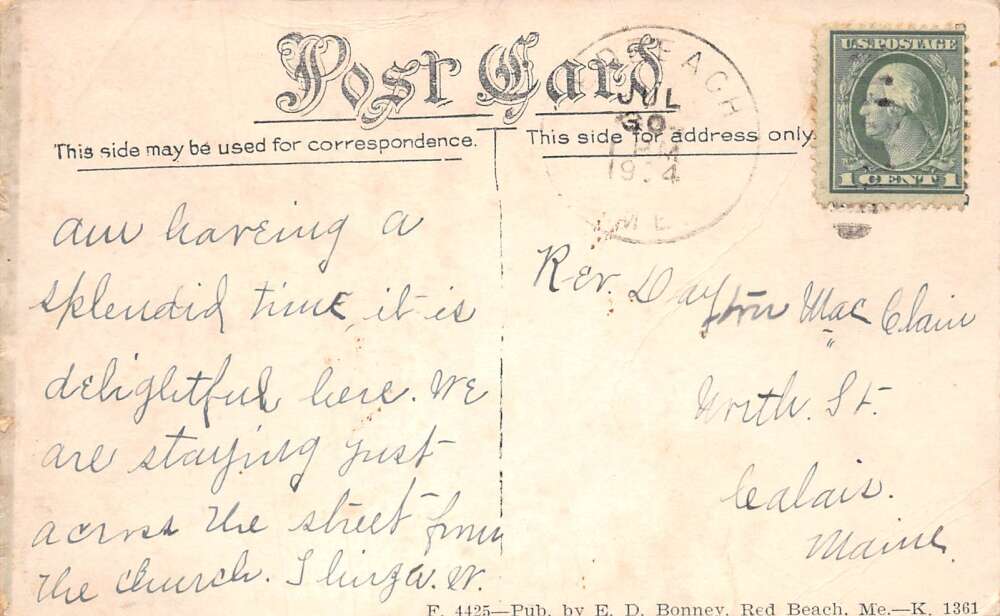 Post Card
This side may be used for correspondence.
This side for address only.
D BEACH
JUL
30
1 PM
19 4
ME.
U.S. POSTAGE
1 CENT 1
am haveing a
splendid time, it is
delightful here. We
are staying just
across the street from
the church. W.
Rev. Dayton Mac Clain
North. St.
Calais.
Maine.
F. 4425—Pub. by E. D. Bonney, Red Beach, Me.—K. 1361